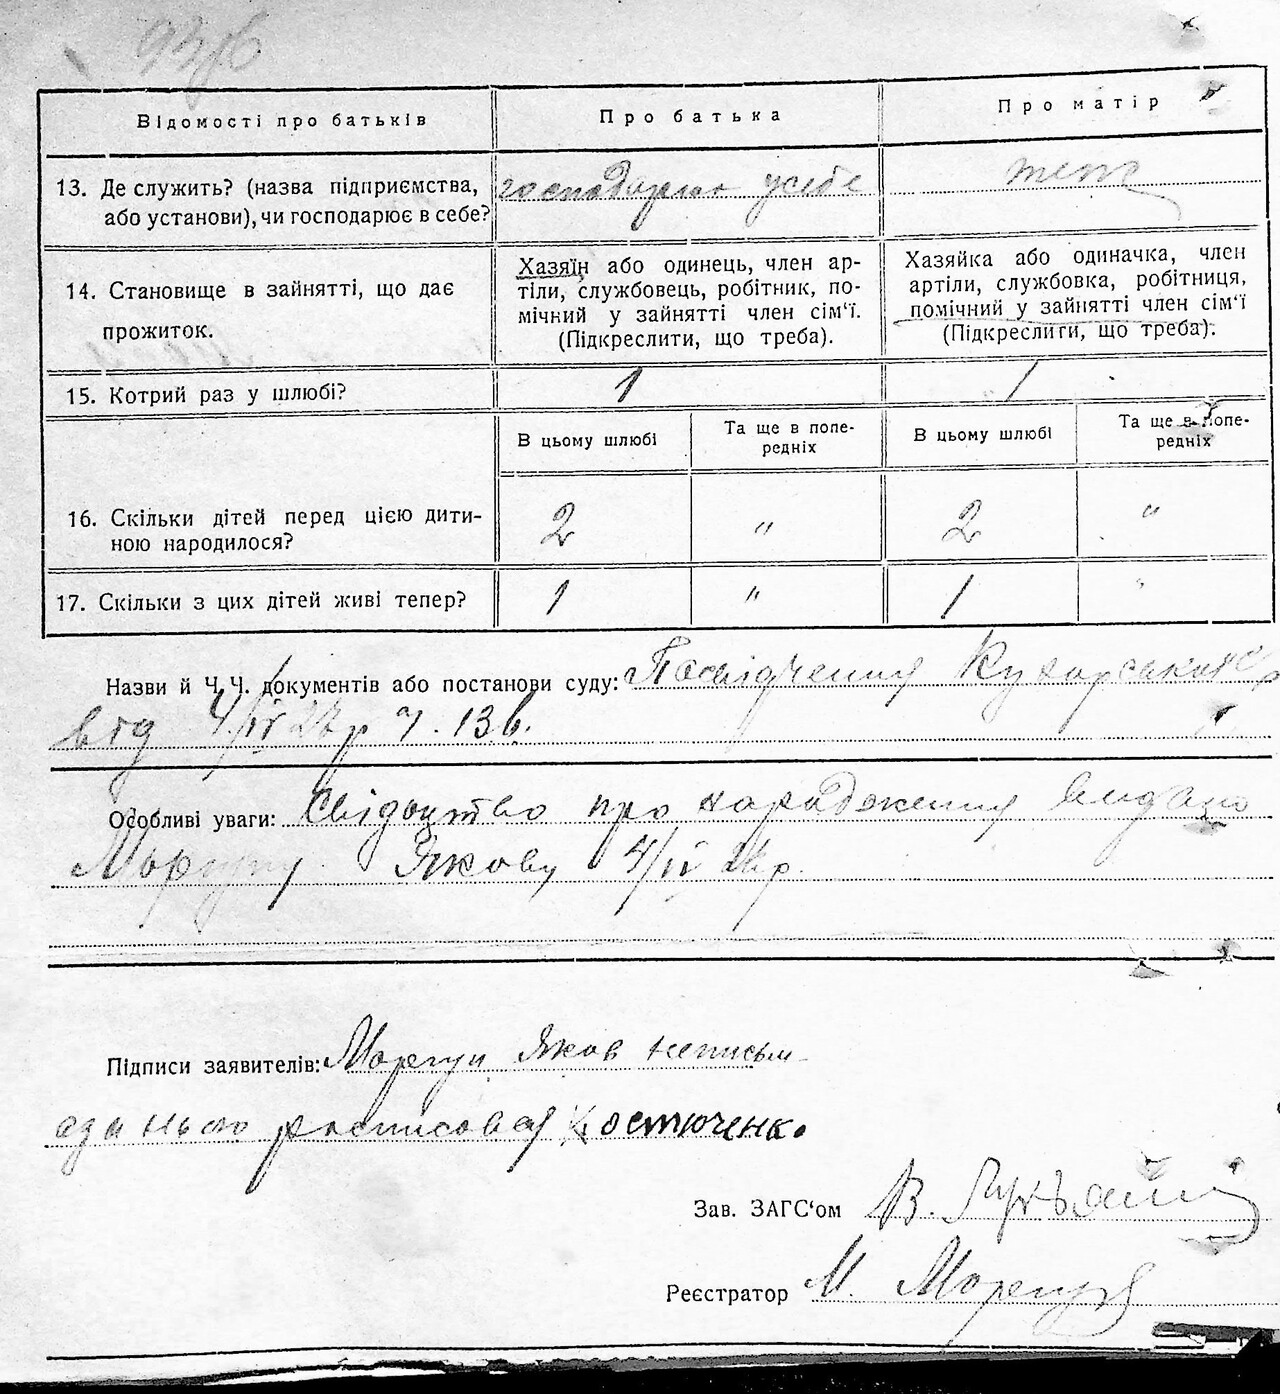 Відомості про батьків
Про батька
Про матір
13. Де служить? (назва підприємства, або установи), чи господарює в себе?
господарює усебе
теж
14. Становище в зайнятті, що дає прожиток.
Хазяїн або одинець, член ар-
тіли, службовець, робітник, по-
мічний у зайнятті член сім'ї.
(Підкреслити, що треба).
Хазяйка або одиначка, член
артіли, службовка, робітниця,
помічний у зайнятті член сім'ї
(Підкреслити, що треба).
15. Котрий раз у шлюбі?
1
1
В цьому шлюбі
Та ще в попе-
редніх
В цьому шлюбі
Та ще в попе-
редніх
16. Скільки дітей перед цією дити-
ною народилося?
2
"
2
"
17. Скільки з цих дітей живі тепер?
1
"
1
"
Назви й Ч.Ч. документів або постанови суду: Посвідчення
від 4/IV 13
Особливі уваги: Свідоцтво про народження видано
Моргуну Якову 4/IV
Підписи заявителів: Моргун Яков неписьм
расписовая Костюченко
Зав. ЗАГС'ом В.
Реєстратор М. Моргун